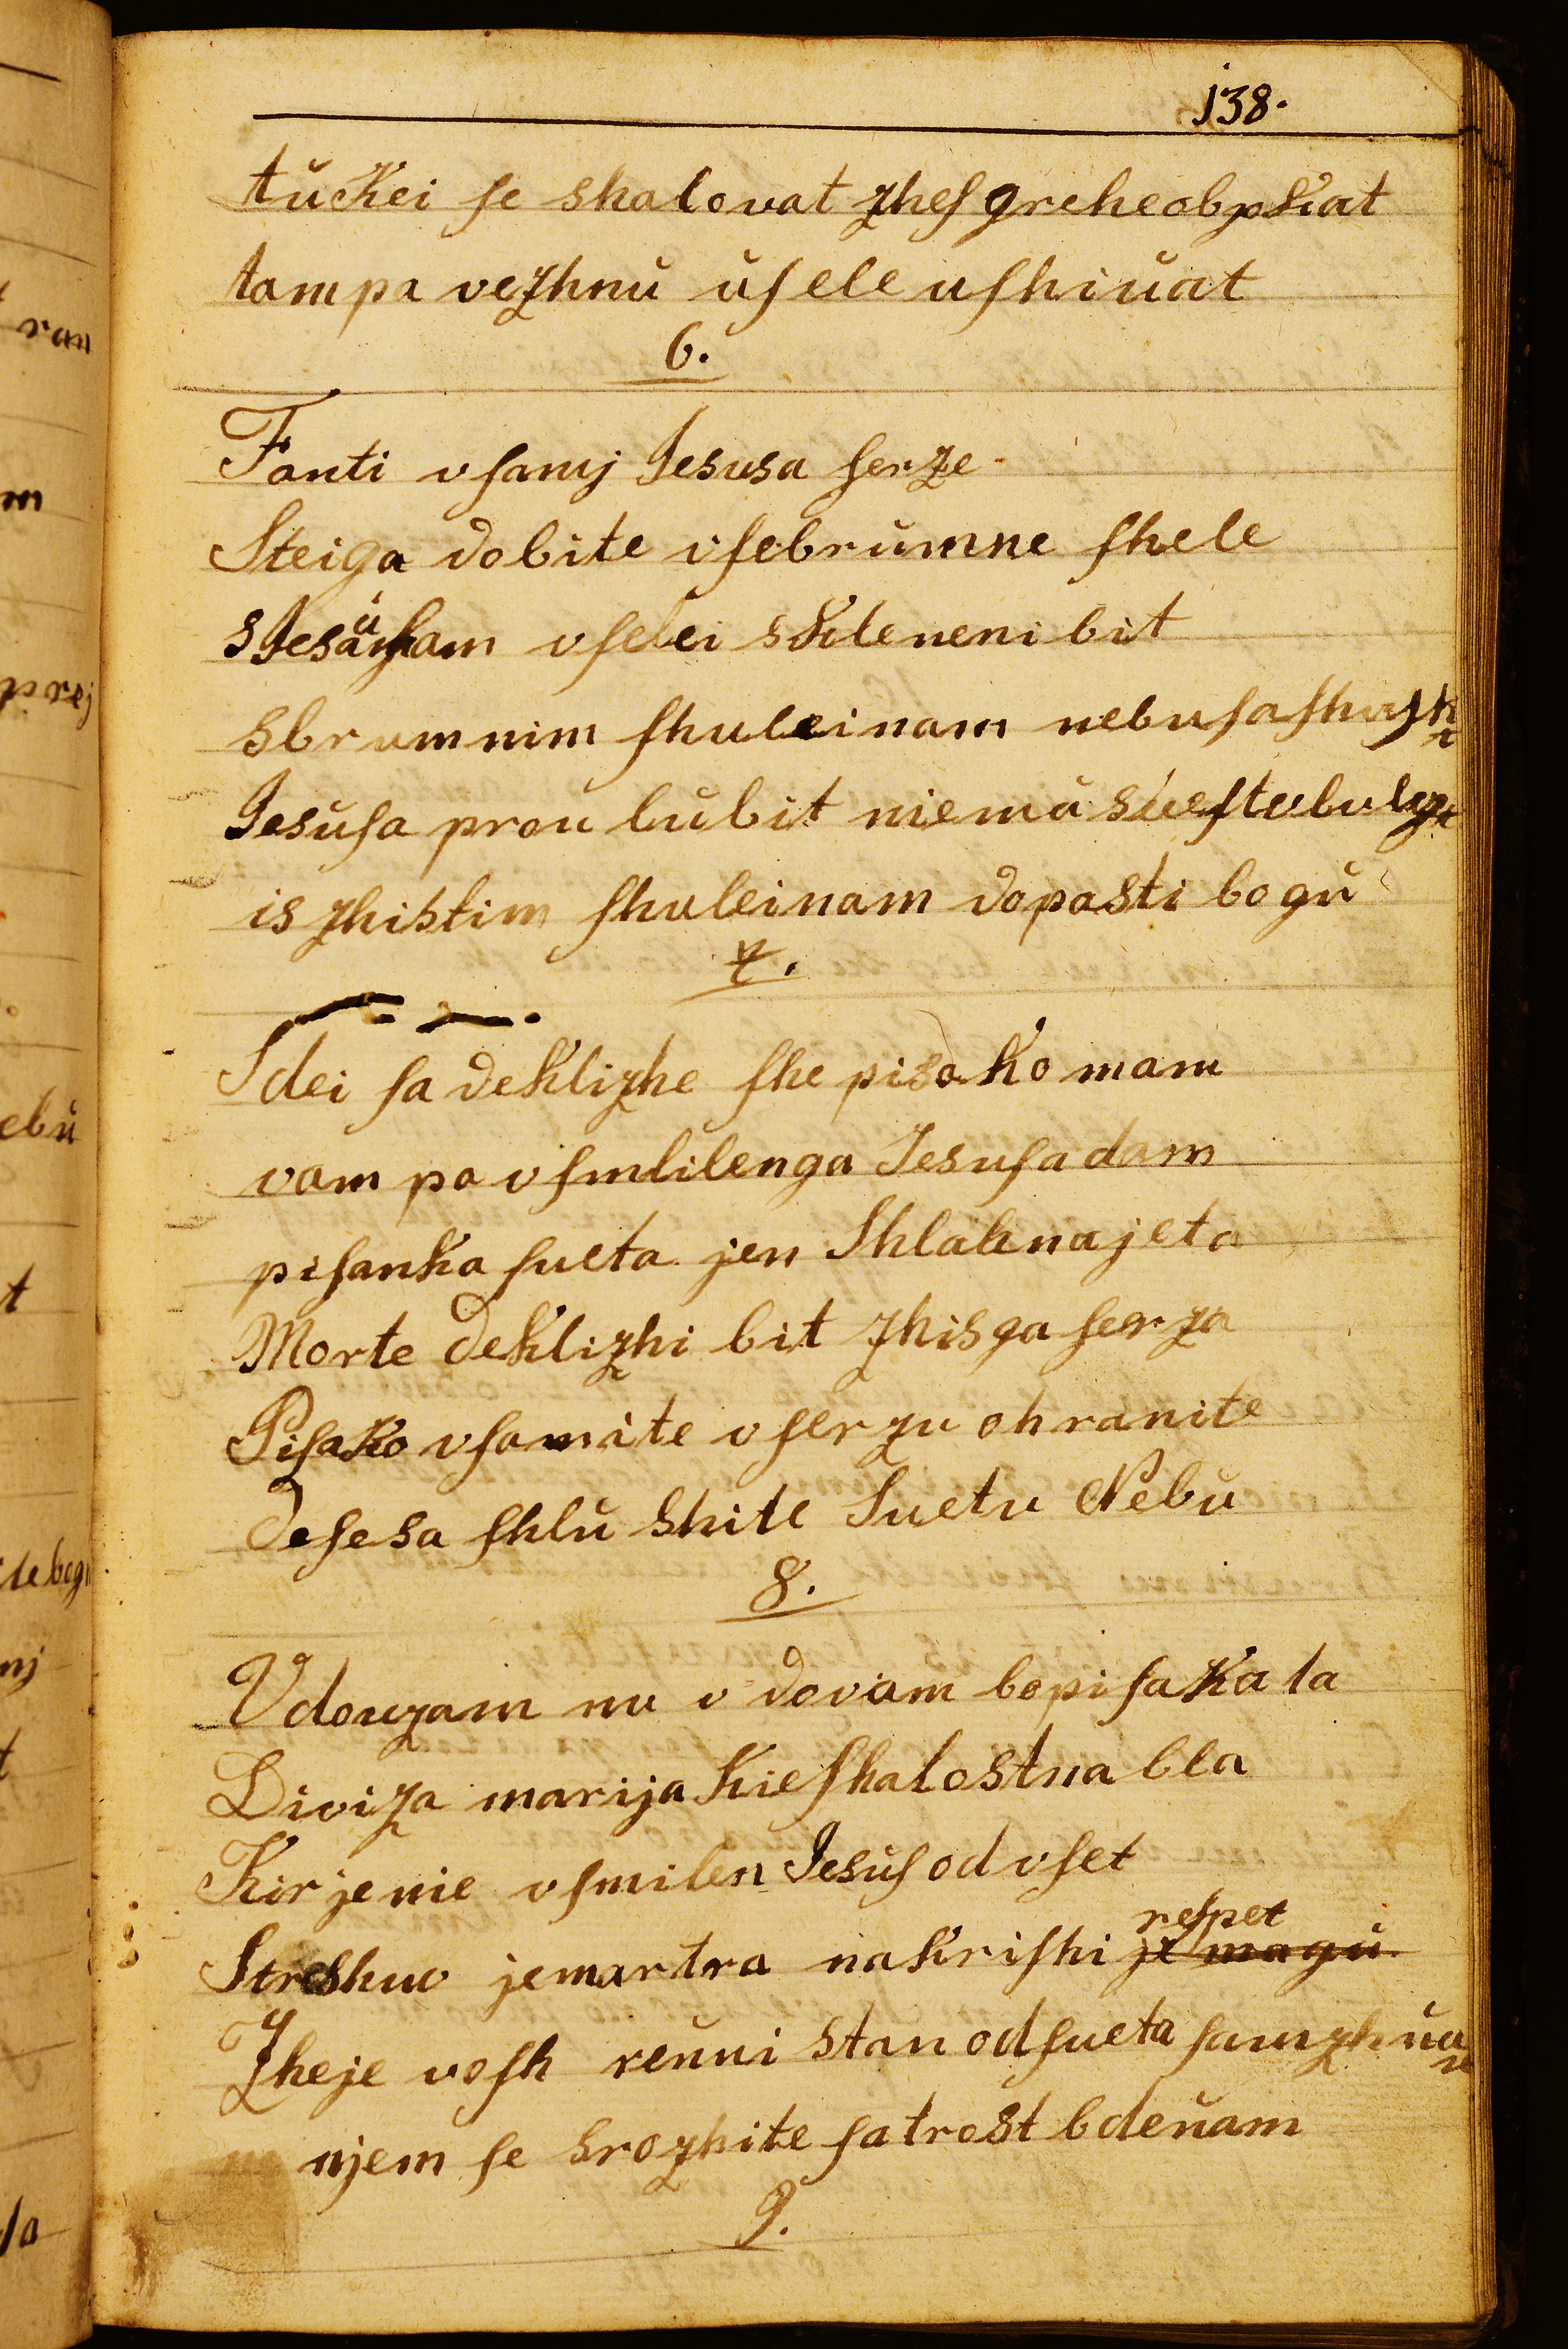 138.
tŭkei ſe shalovat zheſ greheobpkat
tampa vezhnŭ ŭſele uſhiŭat
6.
Fanti vſamj Jesusa ſerze
Steiga dobite vſebrŭmne ſhele
vſelei skleneni bit
sbrumnim ſhuleinam nebuſaſhaſh
Jesŭſa prou lŭbit niemŭ
is zhistim ſhuleinam dopasti bogŭ
7.
Sdei ſa deklizhe ſhe pisako mam
vam pa vſmlilenga Jesuſa dam
piſanka ſueta jen Shlahnajeta
Morte deklizhi bit zhisga ſerza
Piſako vſamite vſerzu ohranite
Deſesa ſhlŭ shite Suetu Nebŭ
8.
Vdouzam nu v dovam bopiſaka ta
Diviza marija kieſhalostna bla
Kir je nie vſmilen Jesŭſ od vſet
Streshuo jemartra nakriſhi reſpet
Zheje voſh reŭni stan odſueta ſamzhŭan
njem ſe srozhite ſatrost bdeŭam
9.
ran
m
prej
ebŭ
t
nj
t
ſa